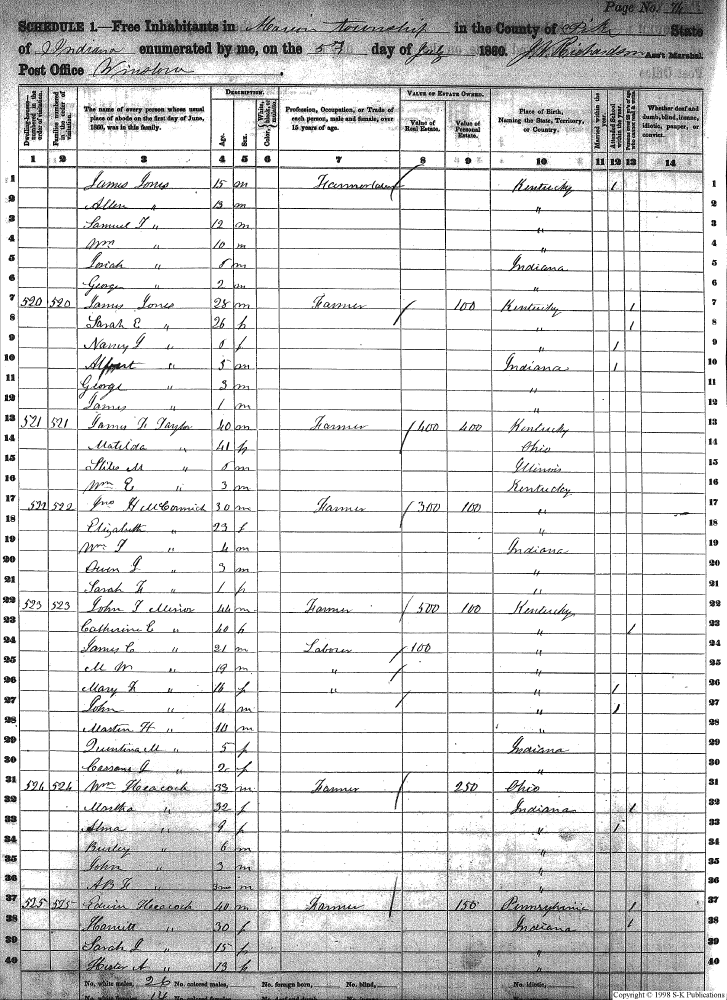 Page No.
SCHEDULE 1.—Free Inhabitants in Marion township in the County of Pike State
of Indiana enumerated by me, on the 5 day of July 1860. Richardson Ass't Marshal.
Post Office Winslow
Dwelling-houses—numbered in the order of visitation. Families numbered in the order of visitation. The name of every person whose usual place of abode on the first day of June, 1860, was in this family. DESCRIPTION. Age. Sex. Color, White, black, or mulatto. Profession, Occupation, or Trade of each person, male and female, over 15 years of age. VALUE OF ESTATE OWNED. Value of Real Estate. Value of Personal Estate. Place of Birth, Naming the State, Territory, or Country. Married within the year. Attended School within the year. Whether deaf and dumb, blind, insane, idiotic, pauper, or convict.
1 2 3 4 5 6 7 8 9 10 11 12 13 14
1 James Jones 15 m Kentucky 1 1
2 Allen " 13 m " 2
3 Samuel T " 12 m " 3
4 Wm " 10 m " 4
5 Josiah " m Indiana 5
6 George " 2 m " 6
7 520 520 James Jones 28 m Farmer 100 Kentucky 1 7
8 Sarah E " 26 f " 1 8
9 Nancy " f " 1 9
10 " 5 m Indiana 1 10
11 George " 3 m " 11
12 James " 1 m " 12
13 521 521 James Taylor 40 m Farmer 400 400 Kentucky 13
14 Matilda " 41 f Ohio 14
15 Stiles M " m Illinois 15
16 Wm E " 3 m Kentucky 16
17 522 522 Jno H McCormick 30 m Farmer 300 100 " 17
18 Elizabeth " 23 f " 18
19 Wm " 4 m Indiana 19
20 Owen " 3 m " 20
21 Sarah " 1 f " 21
22 523 523 John Minor 44 m Farmer 500 100 Kentucky 22
23 Catherine C " 40 f " 1 23
24 James C " 21 m Laborer 100 " 24
25 M W " 19 m " " 25
26 Mary " 16 f " " 1 26
27 John " 14 m " 1 27
28 Martin H " 10 m " 28
29 Quentina M " 5 f Indiana 29
30 " 2 f " 30
31 524 524 Wm Heacock 33 m Farmer 250 Ohio 31
32 Martha " 32 f Indiana 1 32
33 Alma " 9 f " 1 33
34 Burley " 6 m " 34
35 John " 3 m " 35
36 A B " m " 36
37 525 525 Edwin Heacock 40 m Farmer 150 Pennsylvania 1 37
38 Harriett " 30 f Indiana 1 38
39 Sarah " 15 f " 39
40 Hester A " 13 f " 40
No. white males, 26 No. colored males, No. foreign born, No. blind, No. idiotic,
Copyright © 1998 S-K Publications